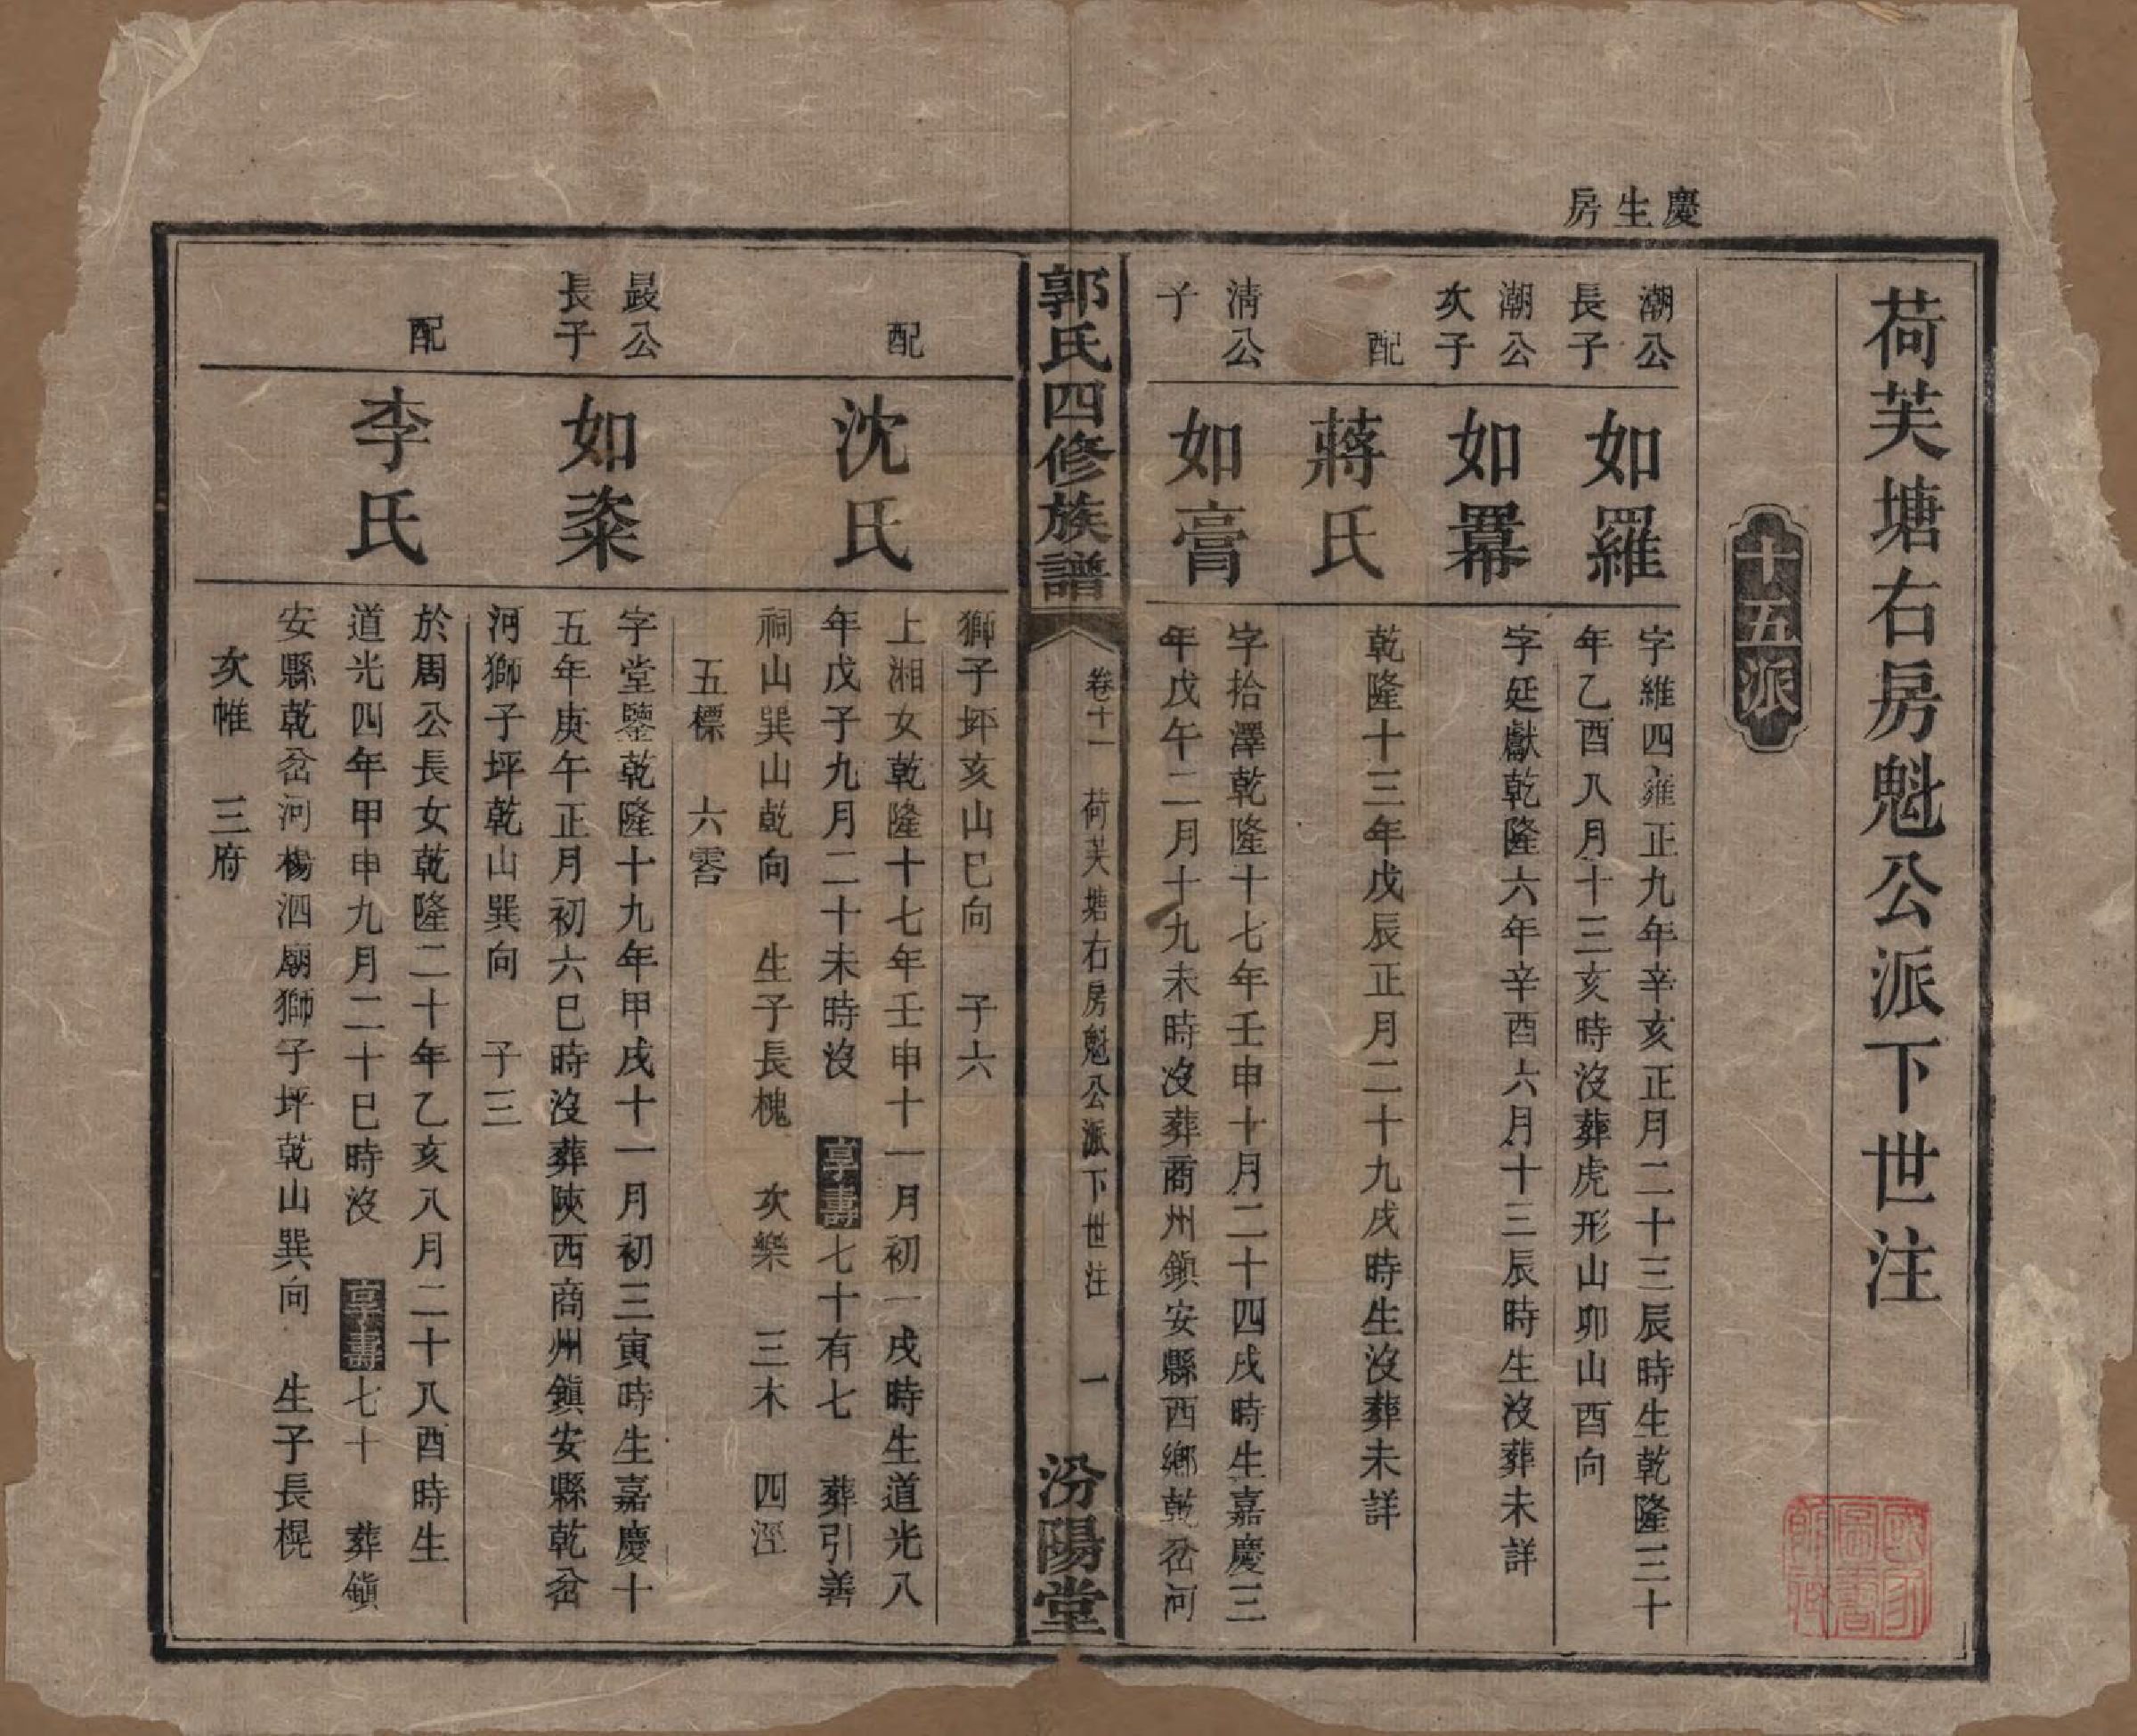 慶生房
荷芙塘右房魁公派下世注
十五派
潮公
長子
如羅
字維四雍正九年辛亥正月二十三辰時生乾隆三十
年乙酉八月十三亥時沒葬虎形山卯山酉向
潮公
次子
如羃
字延獻乾隆六年辛酉六月十三辰時生沒葬未詳
配
蔣氏
乾隆十三年戊辰正月二十九戌時生沒葬未詳
清公
子
如膏
字拾澤乾隆十七年壬申十月二十四戌時生嘉慶三
年戊午二月十九未時沒葬商州鎮安縣西鄉乾岔河
郭氏四修族譜
卷十一 荷芙塘右房魁公派下世注 一
汾陽堂
獅子坪亥山巳向 子六
配
沈氏
上湘女乾隆十七年壬申十一月初一戌時生道光八
年戊子九月二十未時沒 享壽七十有七 葬引善
祠山巽山乾向 生子長槐 次樂 三木 四涇
五標 六
公
長子
如粢
字堂鑒乾隆十九年甲戌十一月初三寅時生嘉慶十
五年庚午正月初六巳時沒葬陝西商州鎮安縣乾岔
河獅子坪乾山巽向 子三
配
李氏
於周公長女乾隆二十年乙亥八月二十八酉時生
道光四年甲申九月二十巳時沒 享壽七十 葬鎮
安縣乾岔河楊泗廟獅子坪乾山巽向 生子長榥
次帷 三府